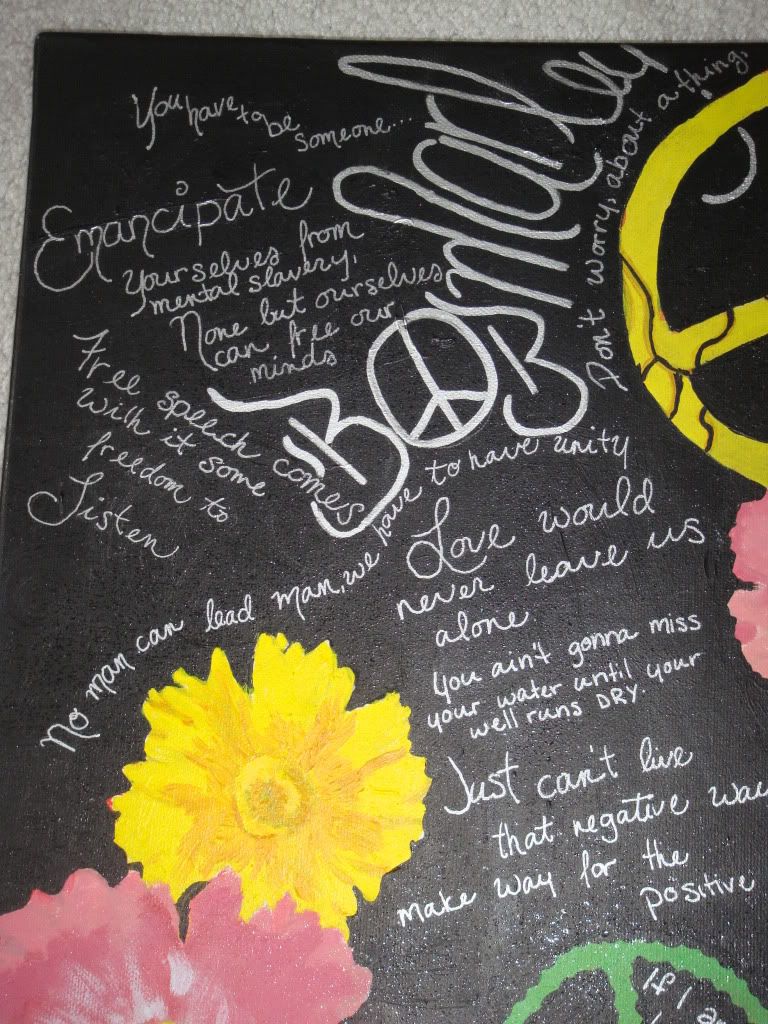 You have to be
someone...
Emancipate
yourselves from
mental slavery,
None but ourselves
can free our
minds
BOB Marley
Don't worry, about a thing,
Free speech comes
with it some
freedom to
Listen
No man can lead man, we have to have unity
Love would
never leave us
alone
you ain't gonna miss
your water until your
well runs DRY.
Just can't live
that negative way
make way for the
positive
If I